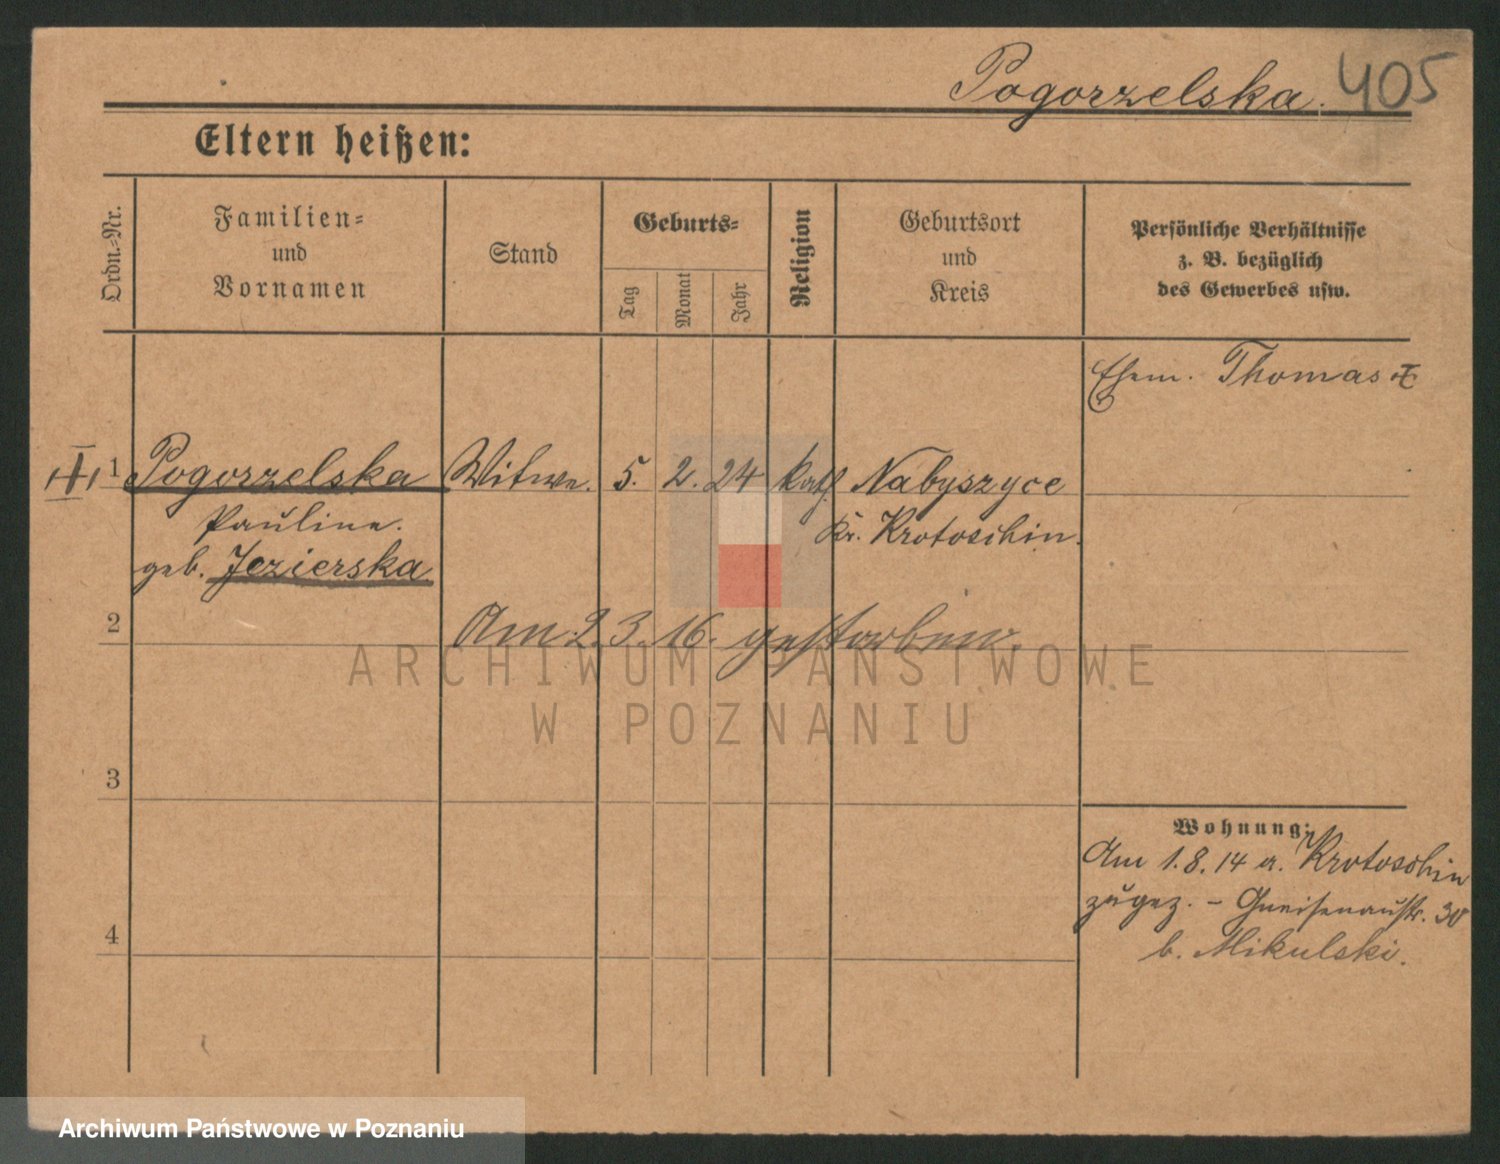 Pogorzelska. 405
Eltern heißen:
Ordn.-Nr.
Familien-
und
Vornamen
Stand
Geburts-
Tag
Monat
Jahr
Religion
Geburtsort
und
Kreis
Persönliche Verhältnisse
z. B. bezüglich
des Gewerbes usw.
Ehem. Thomas
1 Pogorzelska Witwe. 5. 2. 24 kath Nabyszyce
Pauline. Kr. Krotoschin.
geb. Jezierska
2 Am 2.3.16. gestorben.
ARCHIWUM PAŃSTWOWE
W POZNANIU
3
Wohnung:
Am 1.8.14 a. Krotoschin
zugez. - Gneisenaustr. 30
b. Mikulski.
4
Archiwum Państwowe w Poznaniu